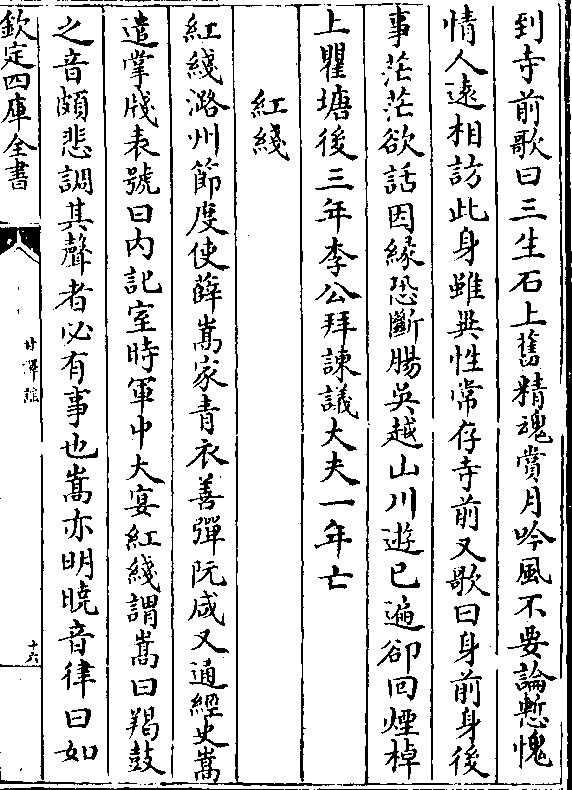 到寺前歌曰三生石上舊精魂賞月吟風不要論慙愧
情人遠相訪此身雖異性常存寺前又歌曰身前身後
事茫茫欲話因緣恐斷腸吳越山川遊已遍卻回煙棹
上瞿塘後三年李公拜諫議大夫一年亡
紅綫
紅綫潞州節度使薛嵩家青衣善彈阮咸又通經史嵩
遣掌牋表號曰內記室時軍中大宴紅綫謂嵩曰羯鼓
之音頗悲調其聲者必有事也嵩亦明曉音律曰如
欽定四庫全書
甘澤謠
十六